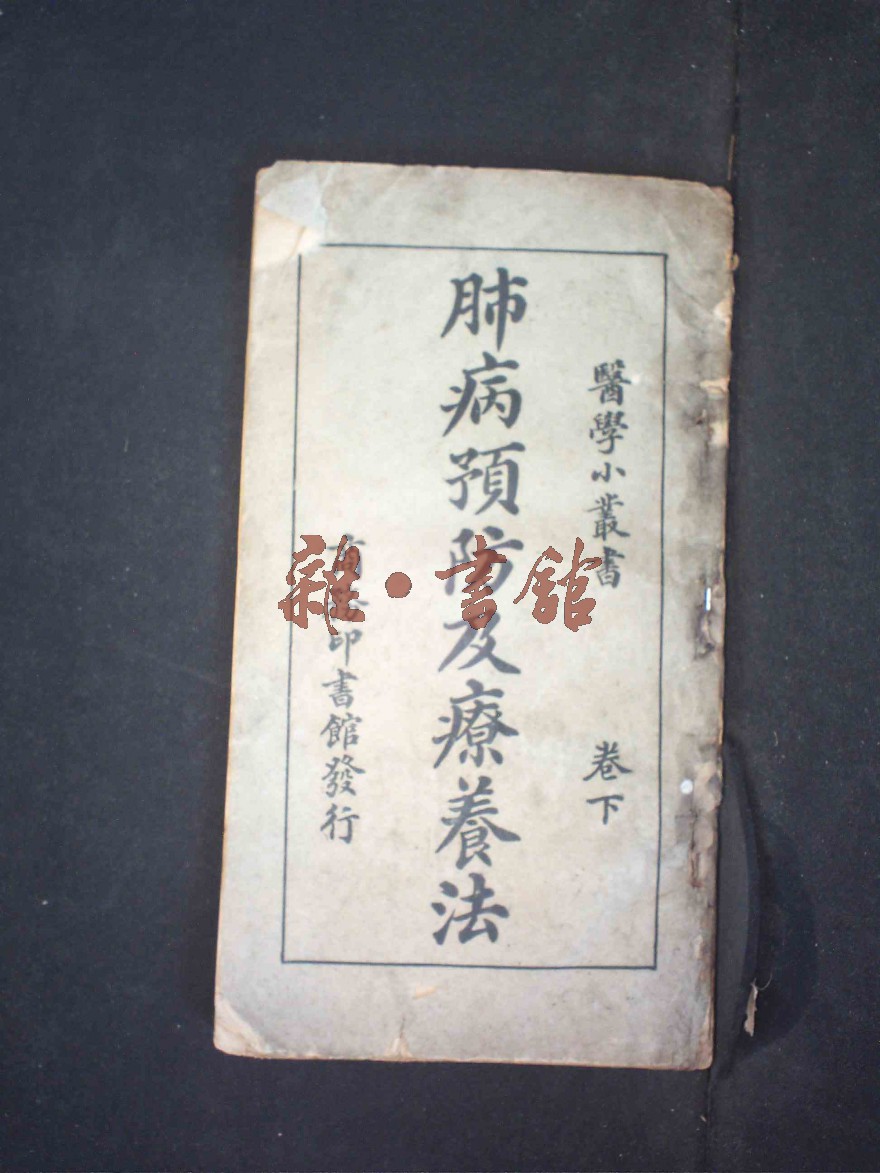 醫學小叢書 卷下
肺病預防及療養法
商務印書館發行
雜·書館